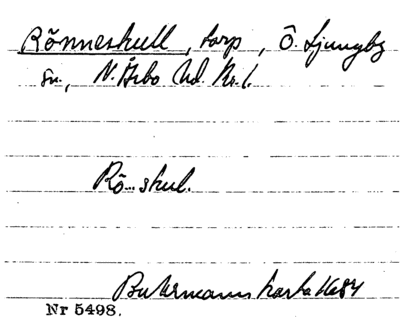 Rönneskull, torp, Ö. Ljungby
sn., N. Åsbo hd. Kr. l.
Rö...skul.
Buhrmanns karta 1684
Nr 5498.